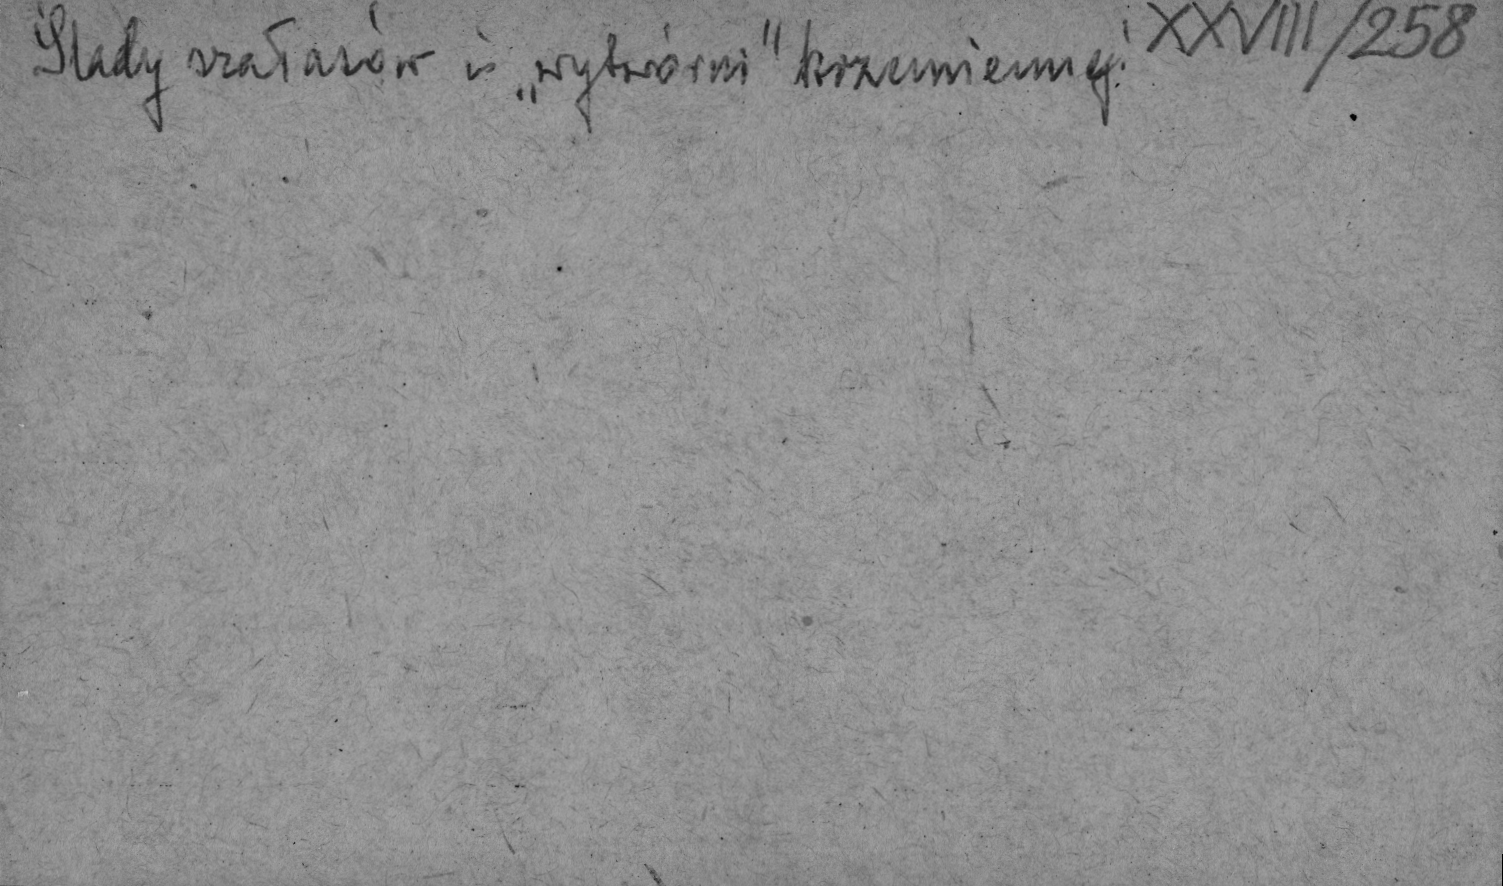 Ślady szałasów i „wytwórni" krzemiennej. XXVIII/258